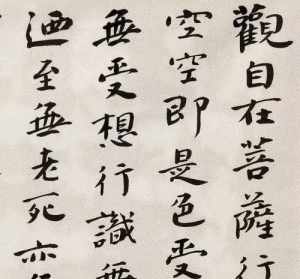 觀自在菩薩行
空空即是色受
無受想行識無
迺至無老死亦